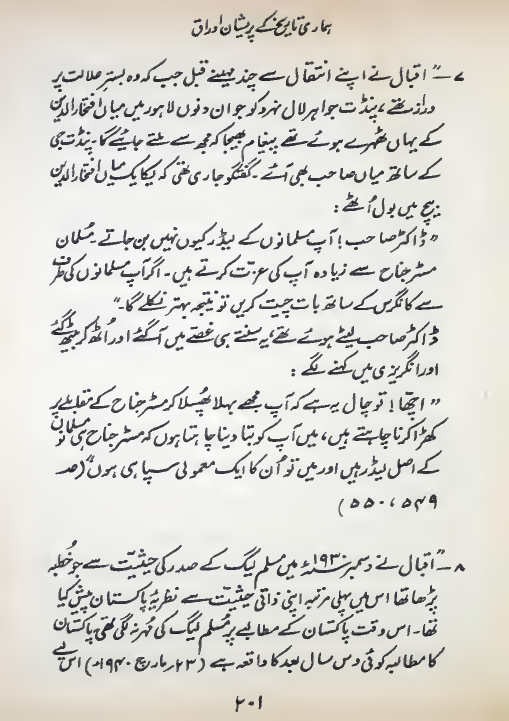 ہماری تاریخ کے پریشان اوراق
۷ ـ "اقبال نے اپنے انتقال سے چند مہینے قبل جب کہ وہ بستر علالت پر
دراز تھے، پنڈت جواہر لال نہرو کو جو ان دنوں لاہور میں میاں افتخار الدین
کے یہاں ٹھہرے ہوئے تھے پیغام بھیجا کہ مجھ سے ملتے جایئے گا۔ پنڈت جی
کے ساتھ میاں صاحب بھی آئے۔ گفتگو جاری تھی کہ یکایک میاں افتخار الدین
بیچ میں بول اُٹھے :
"ڈاکٹر صاحب! آپ مسلمانوں کے لیڈر کیوں نہیں بن جاتے۔ مُسلمان
مسٹر جناح سے زیادہ آپ کی عزت کرتے ہیں۔ اگر آپ مسلمانوں کی طرف
سے کانگرس کے ساتھ بات چیت کریں تو نتیجہ بہتر نکلے گا۔"
ڈاکٹر صاحب لیٹے ہوئے تھے، یہ سنتے ہی غصے میں آگئے اور اُٹھ کر بیٹھ گئے
اور انگریزی میں کہنے لگے :
"اچھا! تو چال یہ ہے کہ آپ مجھے بہلا پھُسلا کر مسٹر جناح کے مقابلے پر
کھڑا کرنا چاہتے ہیں، میں آپ کو بتا دینا چاہتا ہوں کہ مسٹر جناح ہی مسلمانوں
کے اصل لیڈر ہیں اور میں تو اُن کا ایک معمولی سپاہی ہوں" (صـ
۵۴۹ ، ۵۵۰)
۸ ـ "اقبال نے دسمبر ۱۹۳۰ء میں مسلم لیگ کے صدر کی حیثیت سے جو خُطبہ
پڑھا تھا اس میں پہلی مرتبہ اپنی ذاتی حیثیت سے نظریۂ پاکستان پیش کیا
تھا۔ اس وقت پاکستان کے مطالبے پر مُسلم لیگ کی مُہر نہ لگی تھی، پاکستان
کا مطالبہ کوئی دس سال بعد کا واقعہ ہے (۲۳؍مارچ ۱۹۴۰ء) اس لیے
۲۰۱